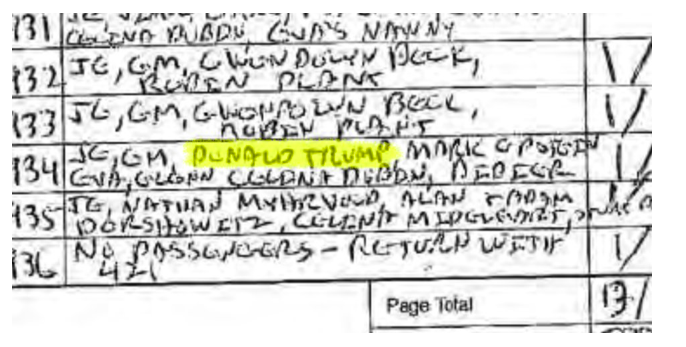 131
CELINA DUBIN, EVA'S NANNY
132 JE, GM, GWENDOLYN BECK,
PLANT 1/
133 JE, GM, GWENDOLYN BECK,
PLANT 1/
134 JE, GM, DONALD TRUMP, MARK EPSTEIN
EVA, GLENN CELINA DUBIN, DIDIER 1/
135 JE, NATHAN MYHRVOLD, ALAN
DERSHOWITZ, CELINA MIDELFART,
136 NO PASSENGERS - RETURN WITH 1/
421
Page Total 13/